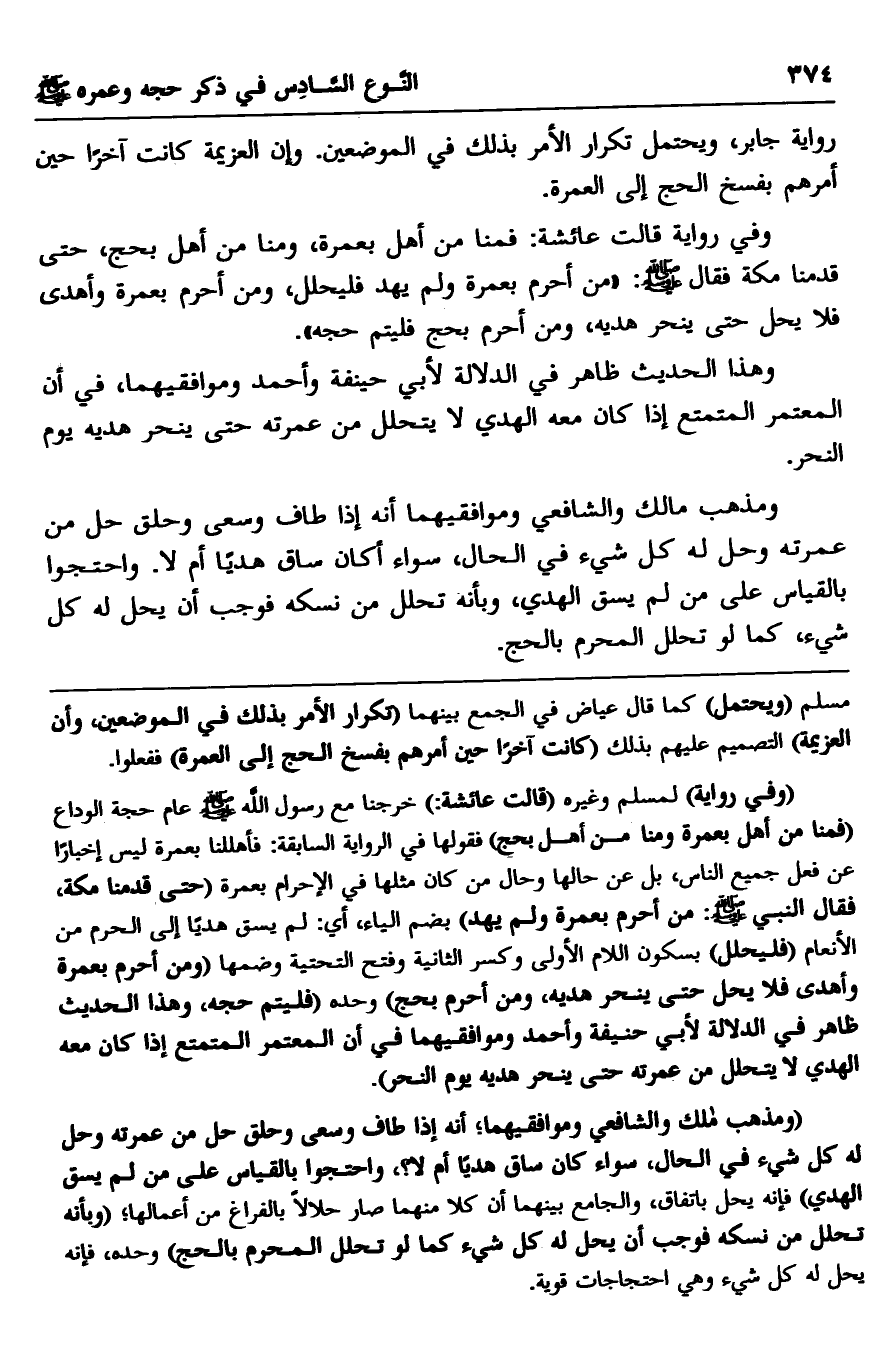 ٣٧٤
النَّوع السَّادِس في ذكر حجه وعمره ﷺ
رواية جابر، ويحتمل تكرار الأمر بذلك في الموضعين. وإن العزيمة كانت آخرًا حين
أمرهم بفسخ الحج إلى العمرة.
وفي رواية قالت عائشة: فمنا من أهل بعمرة، ومنا من أهل بحج، حتى
قدمنا مكة فقال ﷺ: «من أحرم بعمرة ولم يهد فليحلل، ومن أحرم بعمرة وأهدى
فلا يحل حتى ينحر هديه، ومن أحرم بحج فليتم حجه».
وهذا الحديث ظاهر في الدلالة لأبي حينفة وأحمد وموافقيهما، في أن
المعتمر المتمتع إذا كان معه الهدي لا يتحلل من عمرته حتى ينحر هديه يوم
النحر.
ومذهب مالك والشافعي وموافقيهما أنه إذا طاف وسعى وحلق حل من
عمرته وحل له كل شيء في الحال، سواء أكان ساق هديًا أم لا. واحتجوا
بالقياس على من لم يسق الهدي، وبأنه تحلل من نسكه فوجب أن يحل له كل
شيء، كما لو تحلل المحرم بالحج.
مسلم (ويحتمل) كما قال عياض في الجمع بينهما (تكرار الأمر بذلك في الموضعين، وأن
العزيمة) التصميم عليهم بذلك (كانت آخرًا حين أمرهم بفسخ الحج إلى العمرة) ففعلوا.
(وفي رواية) لمسلم وغيره (قالت عائشة:) خرجنا مع رسول اللَّه ﷺ عام حجة الوداع
(فمنا من أهل بعمرة ومنا من أهل بحج) فقولها في الرواية السابقة: فأهللنا بعمرة ليس إخبارًا
عن فعل جميع الناس، بل عن حالها وحال من كان مثلها في الإحرام بعمرة (حتى قدمنا مكة،
فقال النبي ﷺ: من أحرم بعمرة ولم يهد) بضم الياء، أي: لم يسق هديًا إلى الحرم من
الأنعام (فليحلل) بسكون اللام الأولى وكسر الثانية وفتح التحتية وضمها (ومن أحرم بعمرة
وأهدى فلا يحل حتى ينحر هديه، ومن أحرم بحج) وحده (فليتم حجه، وهذا الحديث
ظاهر في الدلالة لأبي حنيفة وأحمد وموافقيهما في أن المعتمر المتمتع إذا كان معه
الهدي لا يتحلل من عمرته حتى ينحر هديه يوم النحر).
(ومذهب مٰلك والشافعي وموافقيهما؛ أنه إذا طاف وسعى وحلق حل من عمرته وحل
له كل شيء في الحال، سواء كان ساق هديًا أم لا؟، واحتجوا بالقياس على من لم يسق
الهدي) فإنه يحل باتفاق، والجامع بينهما أن كلا منهما صار حلالاً بالفراغ من أعمالها؛ (وبأنه
تحلل من نسكه فوجب أن يحل له كل شيء كما لو تحلل المحرم بالحج) وحده، فإنه
يحل له كل شيء وهي احتجاجات قوية.